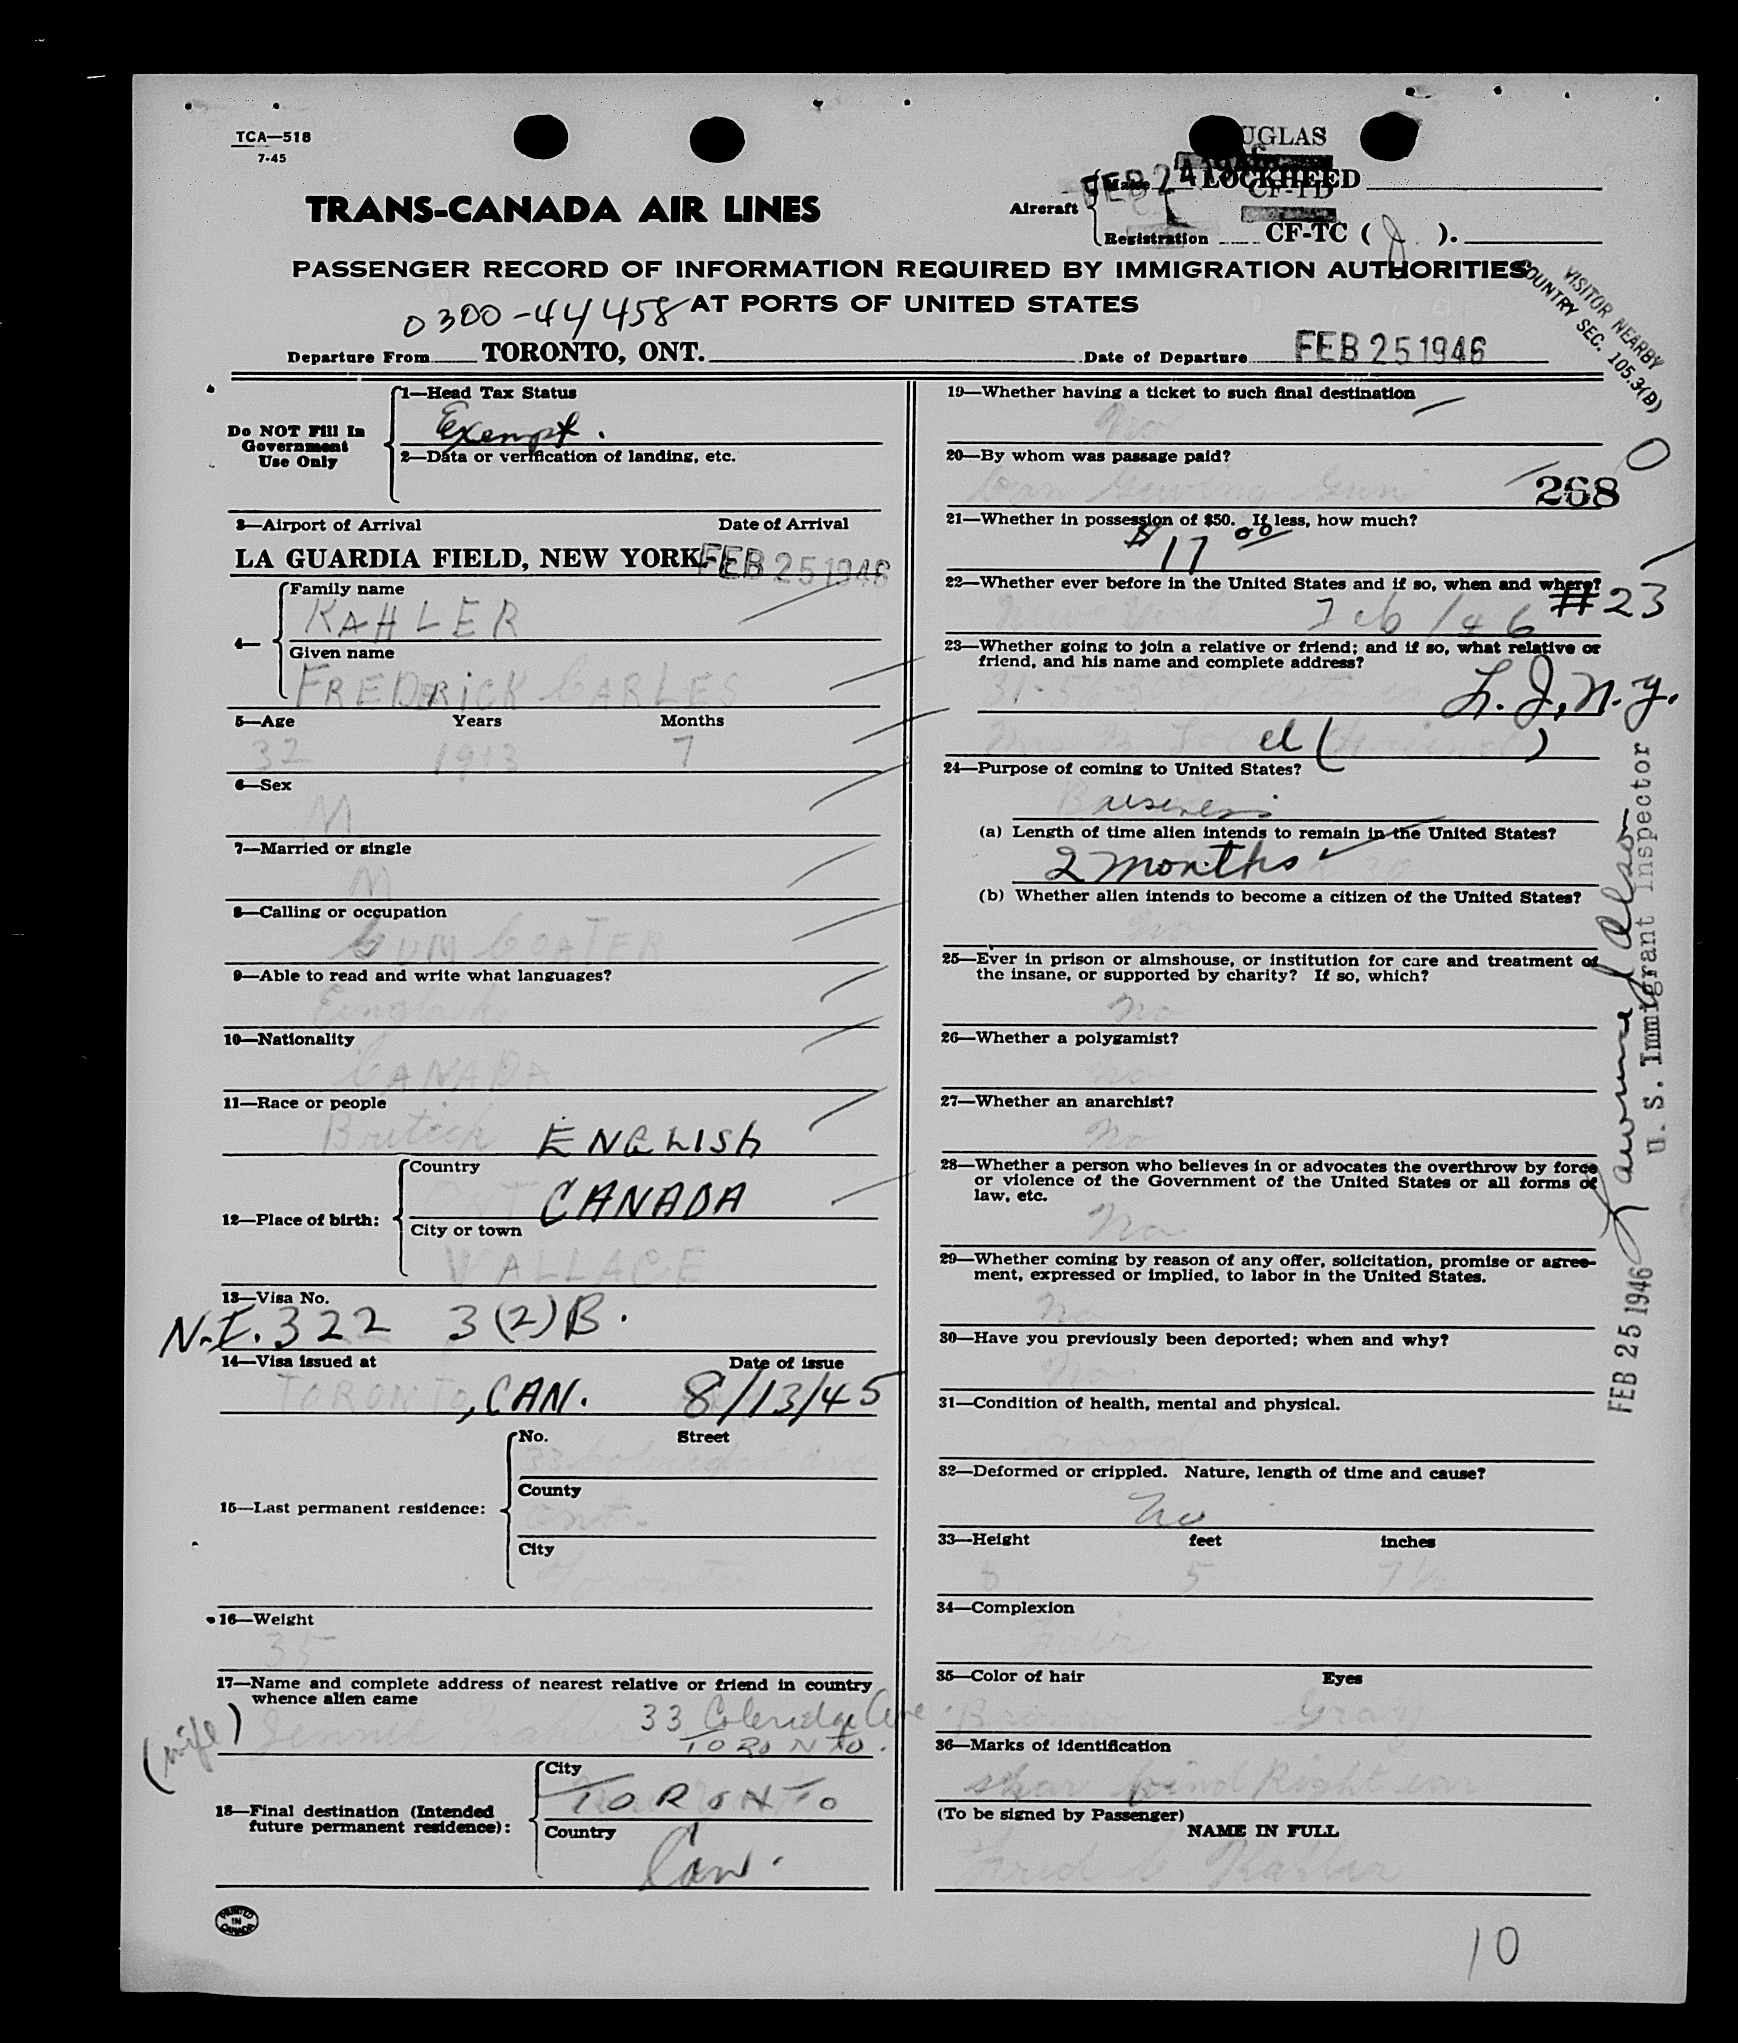 TCA—518
7-45
UGLAS
FEB 24 19
TRANS-CANADA AIR LINES
Aircraft
Make LOCKHEED
CF-TD
Registration CF-TC ( J ).
PASSENGER RECORD OF INFORMATION REQUIRED BY IMMIGRATION AUTHORITIES
0300-44458 AT PORTS OF UNITED STATES
VISITOR NEARBY
COUNTRY SEC. 105.3(B)
Departure From TORONTO, ONT.
Date of Departure FEB 25 1946
Do NOT Fill In
Government
Use Only
1—Head Tax Status
Exempt.
2—Data or verification of landing, etc.
3—Airport of Arrival Date of Arrival
LA GUARDIA FIELD, NEW YORK FEB 25 1946
4— Family name
KAHLER
Given name
FREDERICK CARLES
5—Age Years Months
32 1913 7
6—Sex
M
7—Married or single
M
8—Calling or occupation
GUM COATER
9—Able to read and write what languages?
English
10—Nationality
CANADA
11—Race or people
British ENGLISh
12—Place of birth:
Country
CANADA
City or town
WALLACE
13—Visa No.
N.I. 322 3(2)B.
14—Visa issued at Date of issue
TORONTO, CAN. 8/13/45
15—Last permanent residence:
No. Street
33 Coleridge Ave
County
Ont.
City
Toronto
16—Weight
35
17—Name and complete address of nearest relative or friend in country
whence alien came
(wife) Jennie Kahler 33 Coleridge Ave.
TORONTO.
18—Final destination (Intended
future permanent residence):
City
TORONTO
Country
Can.
PRINTED
IN
CANADA
19—Whether having a ticket to such final destination
20—By whom was passage paid?
268
21—Whether in possession of $50. If less, how much?
$17 00
22—Whether ever before in the United States and if so, when and where?
New York Feb / 46 #23
23—Whether going to join a relative or friend; and if so, what relative or
friend, and his name and complete address?
L. I, N.Y.
Mrs B. el (friend)
24—Purpose of coming to United States?
Business
(a) Length of time alien intends to remain in the United States?
2 months
(b) Whether alien intends to become a citizen of the United States?
No
25—Ever in prison or almshouse, or institution for care and treatment of
the insane, or supported by charity? If so, which?
No
26—Whether a polygamist?
No
27—Whether an anarchist?
No
28—Whether a person who believes in or advocates the overthrow by force
or violence of the Government of the United States or all forms of
law, etc.
No
29—Whether coming by reason of any offer, solicitation, promise or agree-
ment, expressed or implied, to labor in the United States.
No
30—Have you previously been deported; when and why?
No
31—Condition of health, mental and physical.
good
32—Deformed or crippled. Nature, length of time and cause?
No
33—Height feet inches
5 5 7½
34—Complexion
fair
35—Color of hair Eyes
Brown Gray
36—Marks of identification
skar bind Right ear
(To be signed by Passenger)
NAME IN FULL
Fred C Kahler
U. S. Immigrant Inspector
FEB 25 1946
10